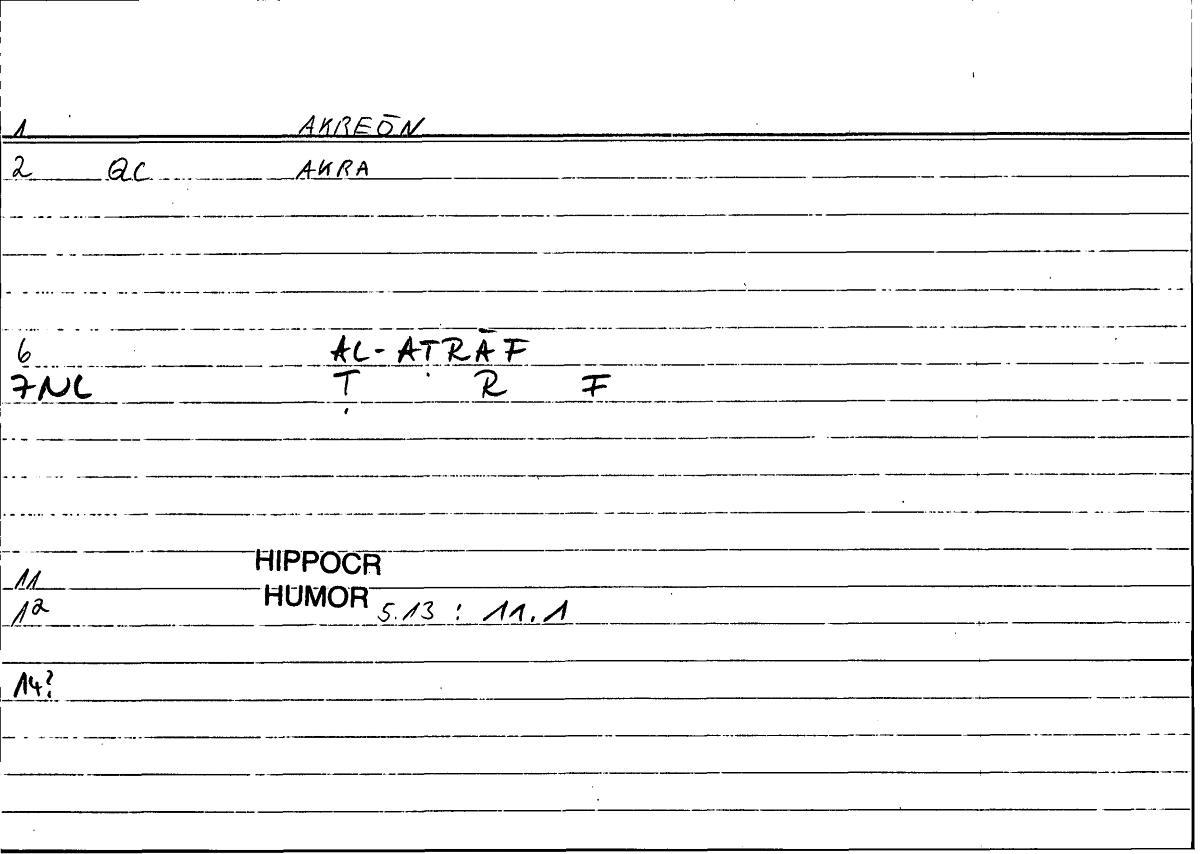 1 AKREŌN
2 QC AKRA
6 AL-AṬRĀF
7NL Ṭ R F
HIPPOCR
11
HUMOR
12 5.13 : 11.1
14?